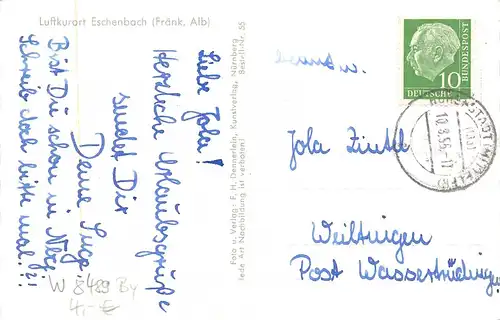 Luftkurort Eschenbach (Fränk. Alb)
Liebe Jola!
Herzliche Urlaubsgrüße
sendet Dir
Deine Inge
Bist Du schon in Nbg.
Schreib doch bitte mal.?!
W 8489 By
4,- €
Foto u. Verlag: F. H. Dennerlein, Kunstverlag, Nürnberg
Jede Art Nachbildung ist verboten!
Bestell-Nr. 55
10
DEUTSCHE
BUNDESPOST
10.8.56
Jola Zintl
Weiltingen
Post Wassertrüdingen